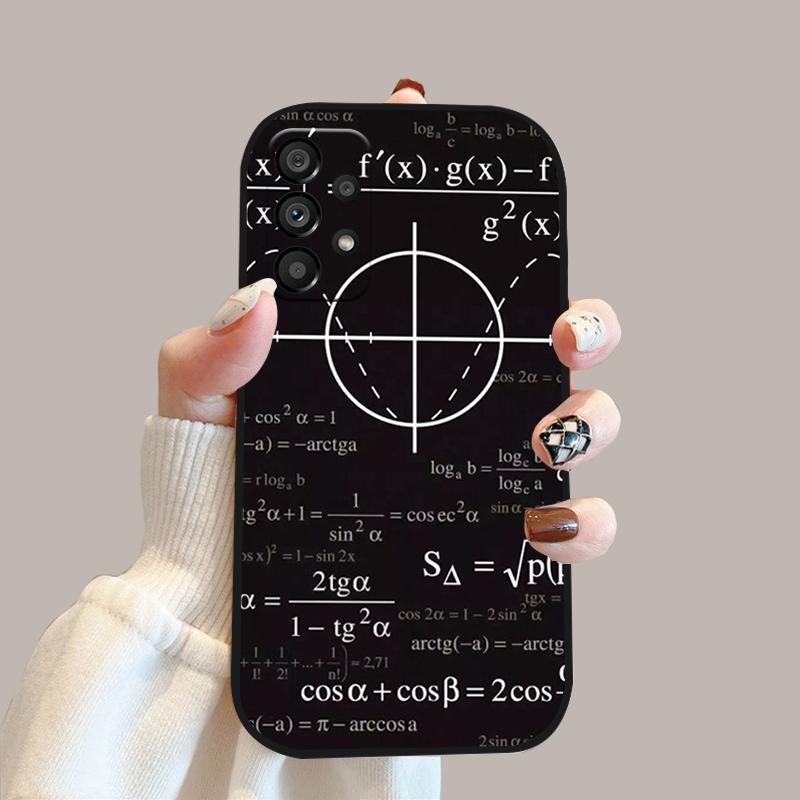 sin α cos α
logₐ b/c = logₐ b – lo
(x) f′(x)·g(x) – f
(x) g²(x)
cos 2α = c
+ cos² α = 1
–a) = –arctga
logₐ b = log_c b / log_c a
= r logₐ b
tg²α+1 = 1/sin² α = cosec²α sin α
os x)² = 1 – sin 2x
S_Δ = √p(p
α = 2tgα / 1 – tg²α
tgx =
cos 2α = 1 – 2 sin² α
arctg(–a) = –arctg
+ 1/1! + 1/2! + ... + 1/n!) ≈ 2,71
cos α + cos β = 2cos
(–a) = π – arccos a
2 sin α